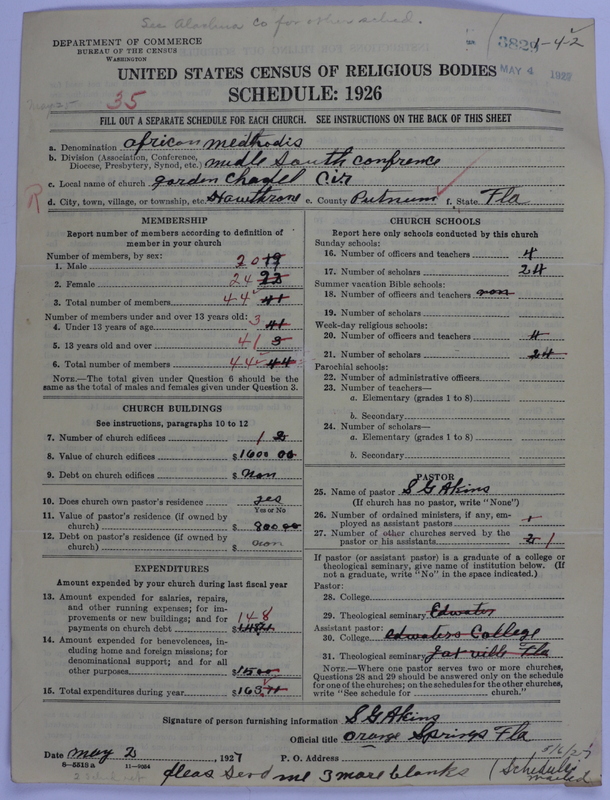 See Alachua Co for other sched.
DEPARTMENT OF COMMERCE
BUREAU OF THE CENSUS
WASHINGTON
3829 1-4-2
MAY 4 1927
UNITED STATES CENSUS OF RELIGIOUS BODIES
SCHEDULE: 1926
35
FILL OUT A SEPARATE SCHEDULE FOR EACH CHURCH. SEE INSTRUCTIONS ON THE BACK OF THIS SHEET
a. Denomination african medthodis
b. Division (Association, Conference, Diocese, Presbytery, Synod, etc.) midle South confrence
c. Local name of church gorden chapel Cir
R d. City, town, village, or township, etc. Hawthrone e. County Putnum f. State Fla
MEMBERSHIP
Report number of members according to definition of member in your church
Number of members, by sex:
1. Male 20 19
2. Female 24 22
3. Total number of members 44 41
Number of members under and over 13 years old:
4. Under 13 years of age 3 41
5. 13 years old and over 41 3
6. Total number of members 44 44
NOTE.—The total given under Question 6 should be the same as the total of males and females given under Question 3.
CHURCH BUILDINGS
See instructions, paragraphs 10 to 12
7. Number of church edifices 1 2
8. Value of church edifices $ 1600 00
9. Debt on church edifices $ non
10. Does church own pastor's residence yes
Yes or No
11. Value of pastor's residence (if owned by church) $ 800 00
12. Debt on pastor's residence (if owned by church) $ non
EXPENDITURES
Amount expended by your church during last fiscal year
13. Amount expended for salaries, repairs, and other running expenses; for improvements or new buildings; and for payments on church debt 148 $
14. Amount expended for benevolences, including home and foreign missions; for denominational support; and for all other purposes $ 15 00
15. Total expenditures during year $ 163
CHURCH SCHOOLS
Report here only schools conducted by this church
Sunday schools:
16. Number of officers and teachers 4
17. Number of scholars 24
Summer vacation Bible schools:
18. Number of officers and teachers non
19. Number of scholars
Week-day religious schools:
20. Number of officers and teachers 4
21. Number of scholars 24
Parochial schools:
22. Number of administrative officers
23. Number of teachers—
a. Elementary (grades 1 to 8)
b. Secondary
24. Number of scholars—
a. Elementary (grades 1 to 8)
b. Secondary
PASTOR
25. Name of pastor S G Akins
(If church has no pastor, write "None")
26. Number of ordained ministers, if any, employed as assistant pastors
27. Number of other churches served by the pastor or his assistants 2 1
If pastor (or assistant pastor) is a graduate of a college or theological seminary, give name of institution below. (If not a graduate, write "No" in the space indicated.)
Pastor:
28. College
29. Theological seminary Edwater
Assistant pastor:
30. College edwaters College
31. Theological seminary Jax ville Fla
NOTE.—Where one pastor serves two or more churches, Questions 28 and 29 should be answered only on the schedule for one of the churches; on the schedules for the other churches, write "See schedule for church."
Signature of person furnishing information S G Akins
Official title orange Springs Fla
Date may 2, 1927 P. O. Address
8—5513a 11—9034
pleas send me 3 more blanks
5/6/27
(Schedules mailed